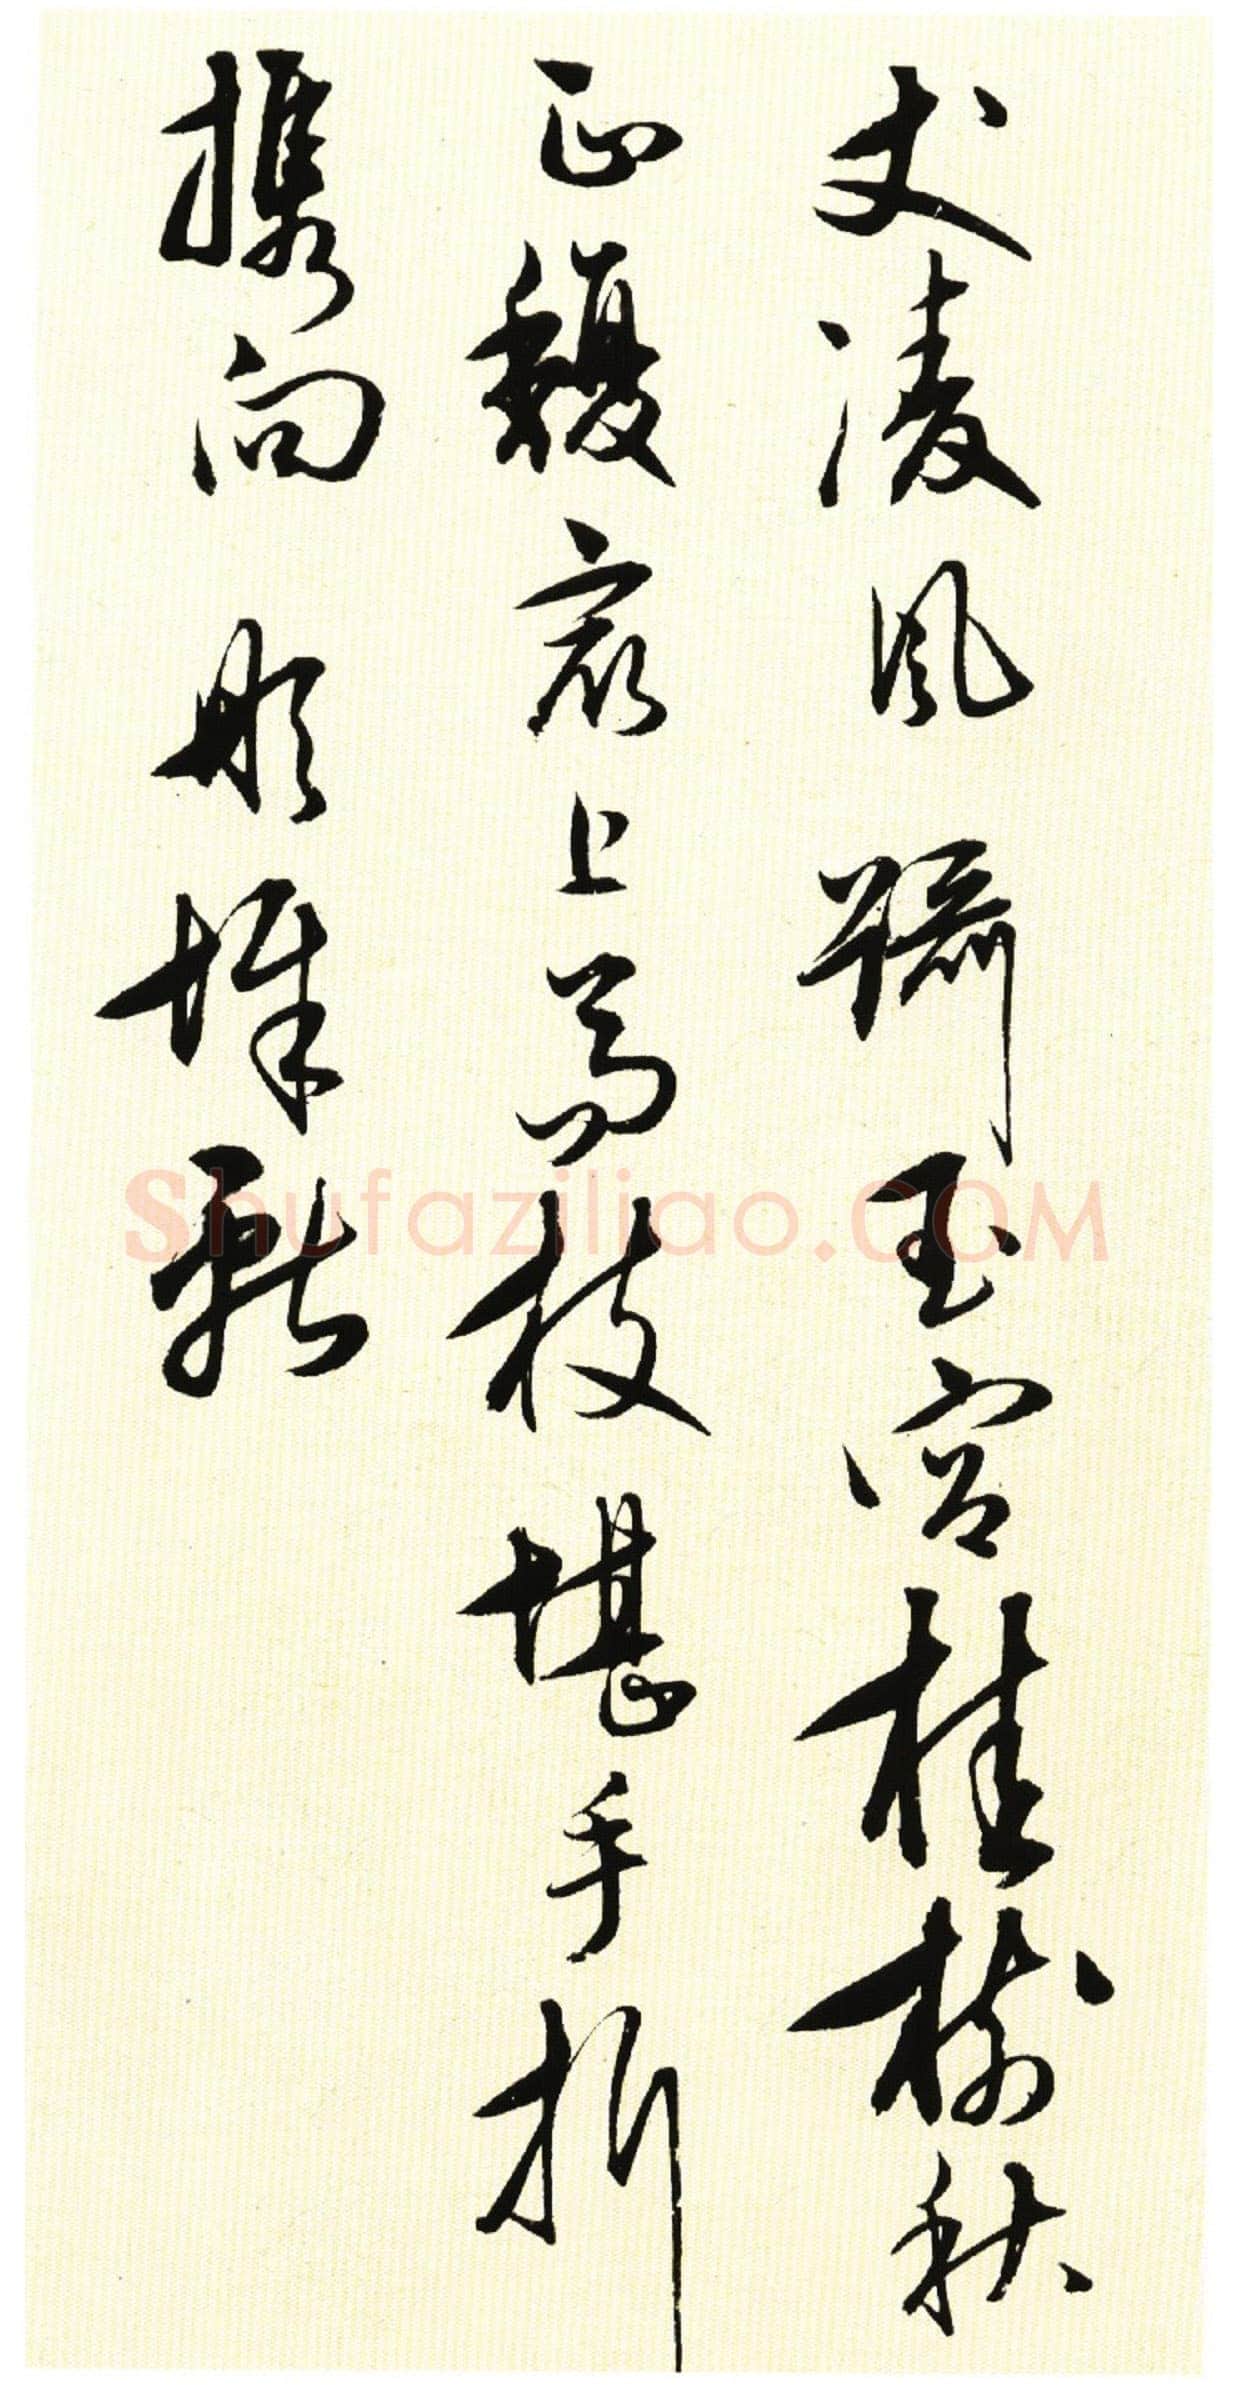 丈凌风蹑玉宫桂树秋
正馥最上高枝堪手折
携向彤墀献
Shufaziliao.COM